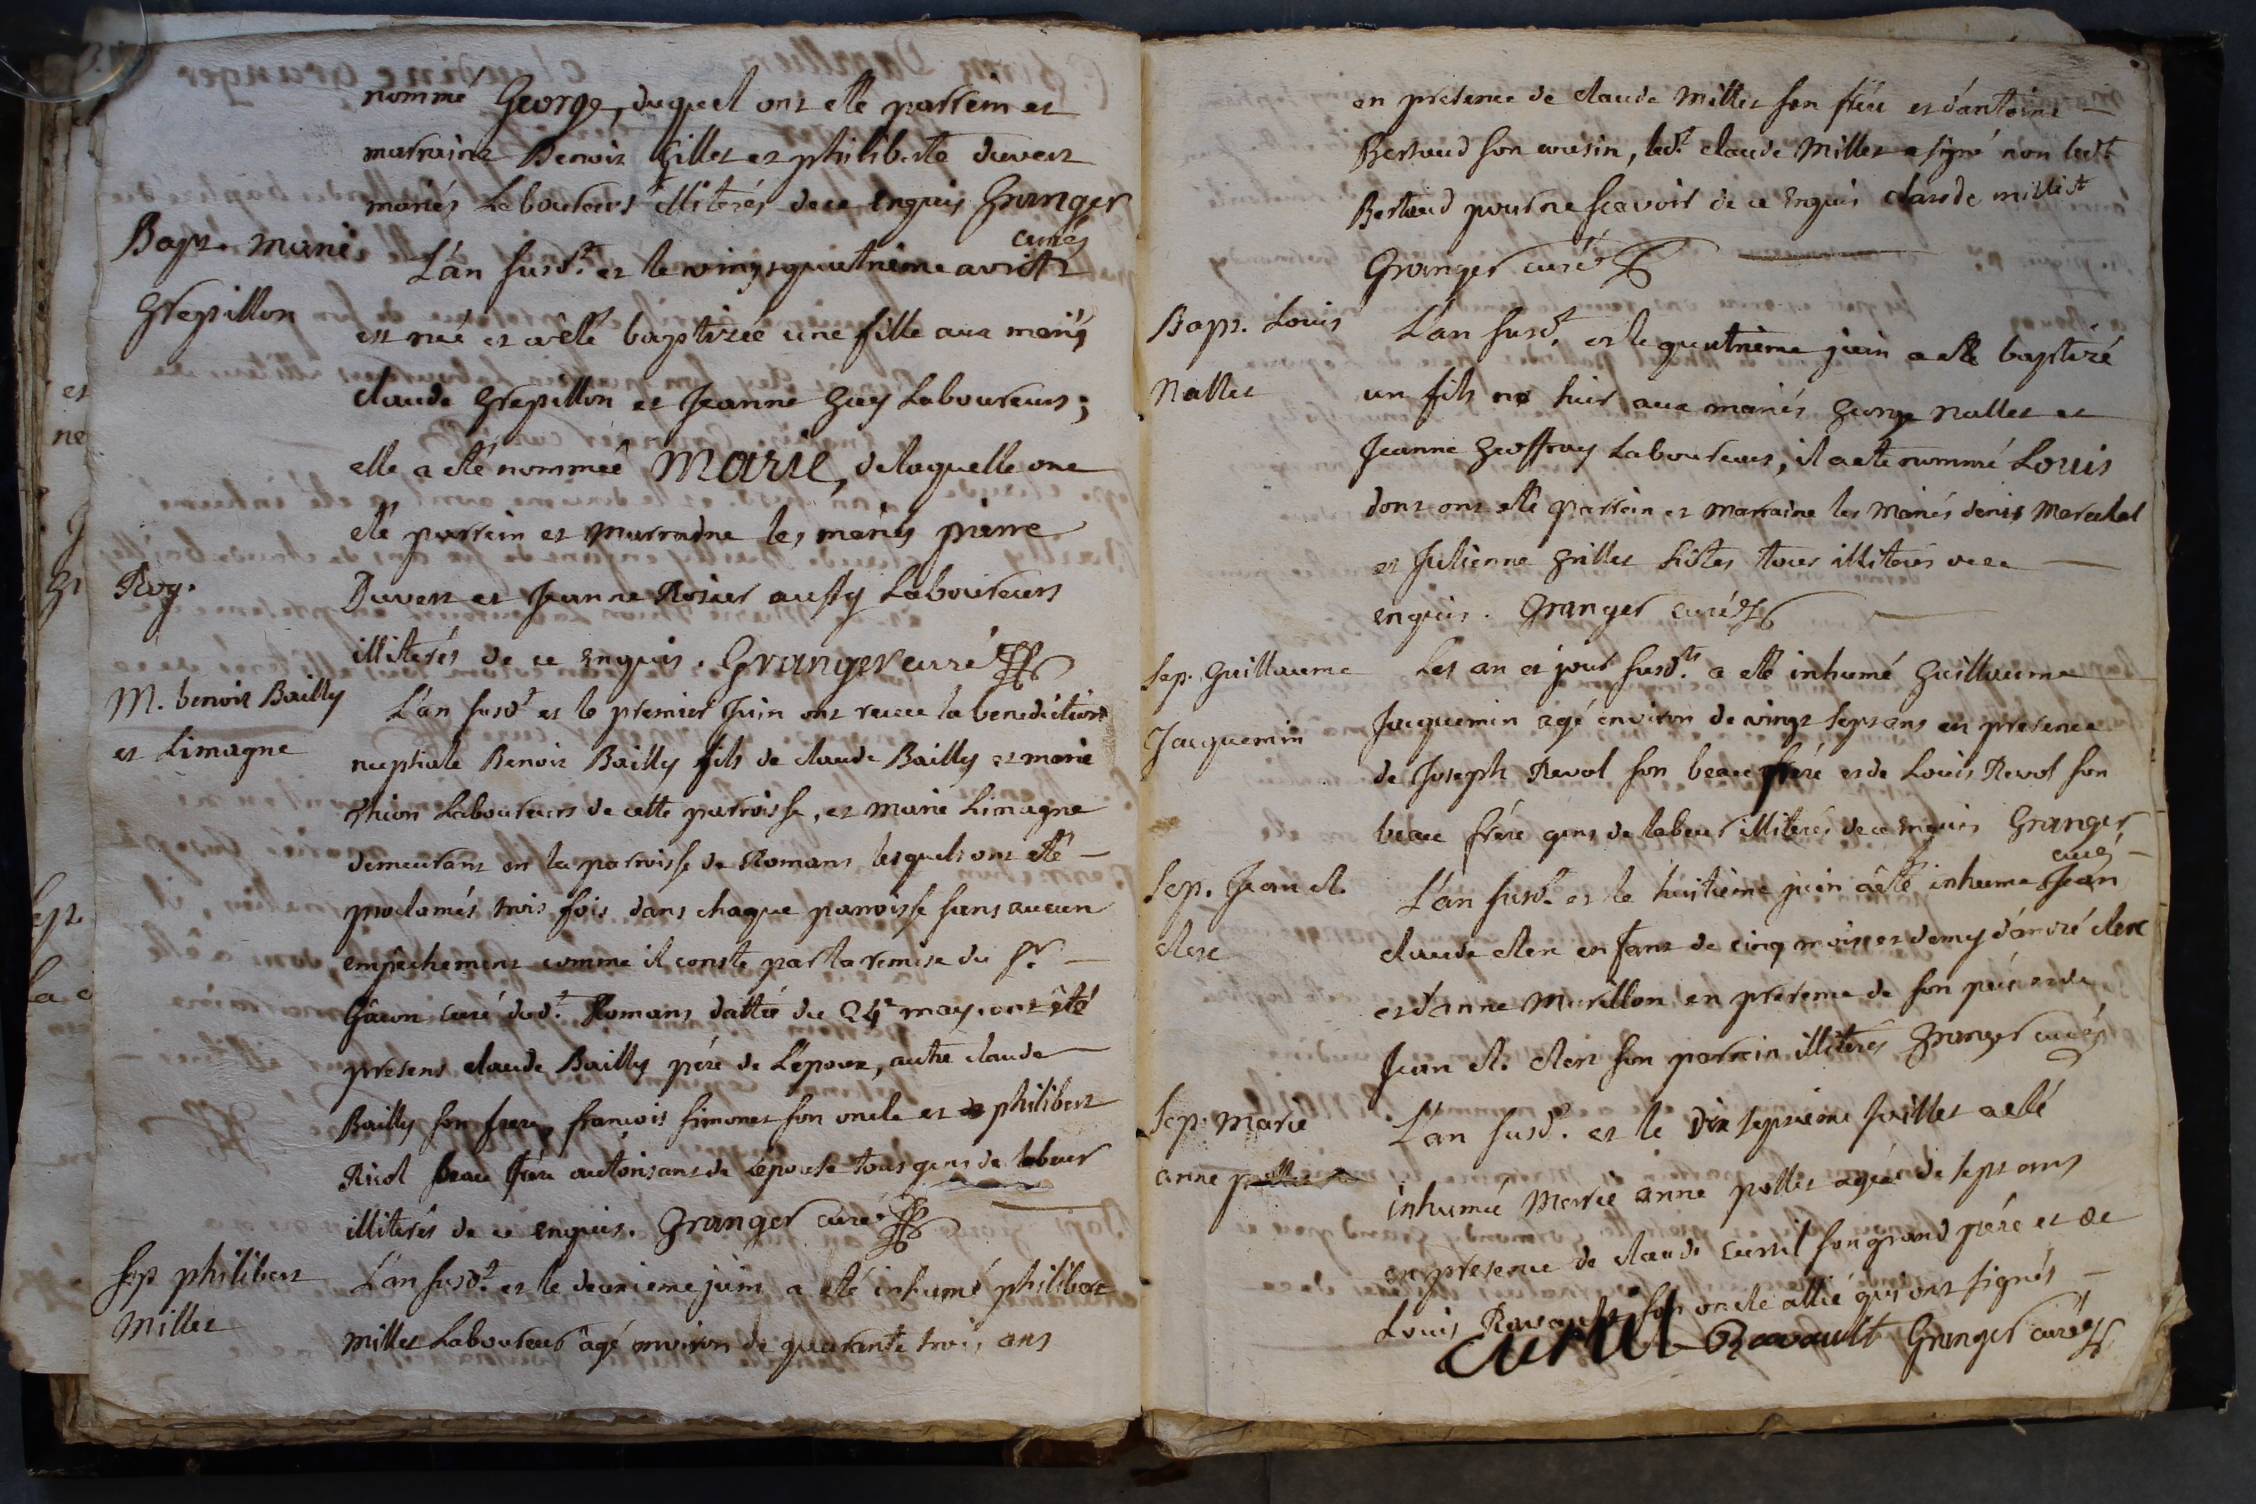 nommé George, duquel ont esté parrein et
marraine Benoit Gillet et philiberte duvert
mariés Laboureurs illiterés de ce enquis Granger
curé
Bapt. Marie
Grepillon
L'an susd.t et le vingt quatrieme avril
est née et a eté baptizée une fille aux mariés
claude Grepillon et Jeanne Guy Laboureurs;
elle a eté nommée Marie, de laquelle ont
eté parrein et marraine les mariés pierre
Roy.
Duvert et Jeanne Rosier aussy Laboureurs
illiterés de ce enquis. Granger curé
M. benoit Bailly
et Limagne
L'an susd.t et le premier Juin ont receu la benediction
nuptiale Benoit Bailly fils de claude Bailly et marie
Laboureurs de cette parroisse, et marie Limagne
demeurant en la parroisse de Romans lesquels ont eté
proclamés trois fois dans chaque parroisse sans aucun
empêchement comme il conste par la remise du Sr
curé dud.t Romans dattée du 24e may. ont été
presens claude Bailly père de L'epoux, autre claude
Bailly son frere, francois simonet son oncle et philibert
Ricol beau frère autorisant de L'épouse tous gens de labeur
illiterés de ce enquis. Granger curé
Sep philibert
Millet
L'an susd.t et le deuxieme juin a eté inhumé philibert
millet Laboureur âgé environ de quarante trois ans
en presence de claude Millet son frère et d'antoine
Bertaud son cousin, led.t claude Millet a signé non led.t
Bertaud pour ne scavoir de ce enquis claude millet
Granger curé
Bapt. Louis
Nallet
L'an susd.t et le quatrième juin a esté baptizé
un fils né hier aux mariés George nallet et
Jeanne Geoffray Laboureurs, il a eté nommé Louis
dont ont eté parrein et marraine les mariés denis Marechal
et Julienne Grillet tous illiterés de ce
enquis. Granger curé
Sep. Guillaume
Jacquemin
Les an et jour susd.ts a eté inhumé Guillaume
Jacquemin agé environ de vingt sept ans en presence
de Joseph Revol son beau père et de Louis Revol son
beau frère gens de labeur illiterés de ce enquis Granger
curé
Sep. Jean cl.
clerc
L'an susd.t et le huitième juin a eté inhumé Jean
claude clerc enfant de cinq mois et demy d'andré clerc
et d'anne Marillon en presence de son père et de
Jean cl. clerc son parrein illiterés Granger curé
Sep. Marie
anne pollet
L'an susd.t et le Dix septieme Juillet a eté
inhumée Marie anne pollet agée de sept ans
en presence de claude Curtil son grand père et de
Louis Ravault son oncle allié qui ont signés
Curtil Ravault Granger curé